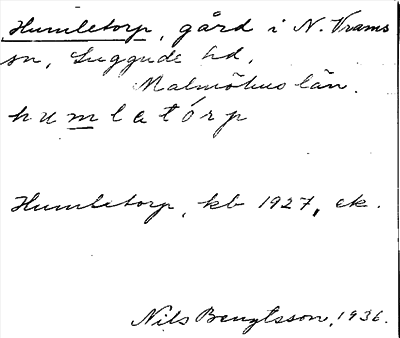 Humletorp, gård i N. Vrams
sn, Luggude hd,
Malmöhus län.
humletórp
Humletorp, kb 1927, ek.
Nils Bengtsson, 1936.